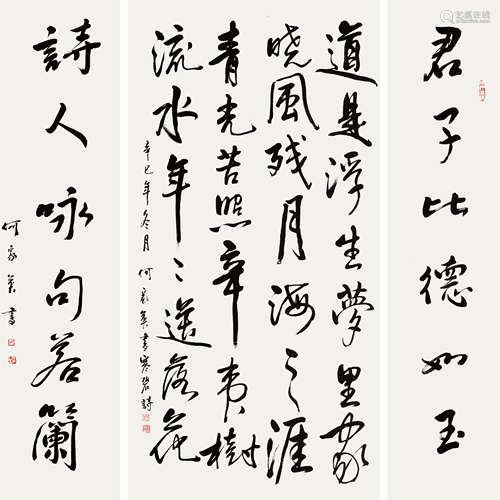 君子比德如玉
道是浮生夢里家
晓風残月海之涯
青光苦照辛夷樹
流水年々送落花
辛巳年冬月 何家英書寒碧詩
詩人咏句若蘭
何家英書